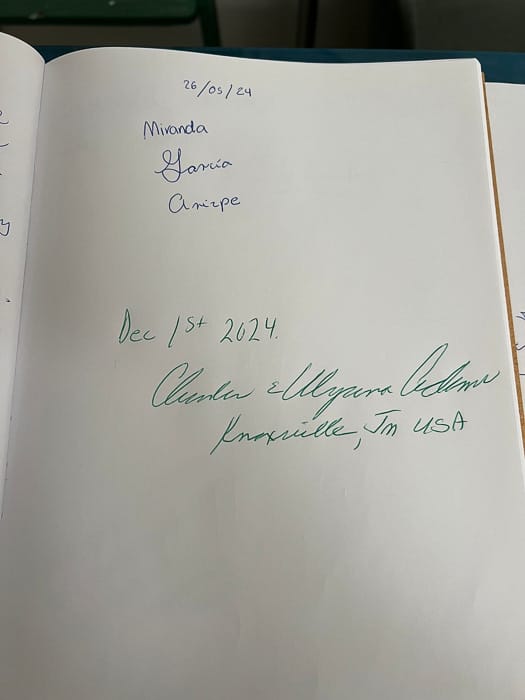 26/05/24
Miranda
García
Arizpe
Dec 1st 2024.
Charles &
Knoxville, Tn USA